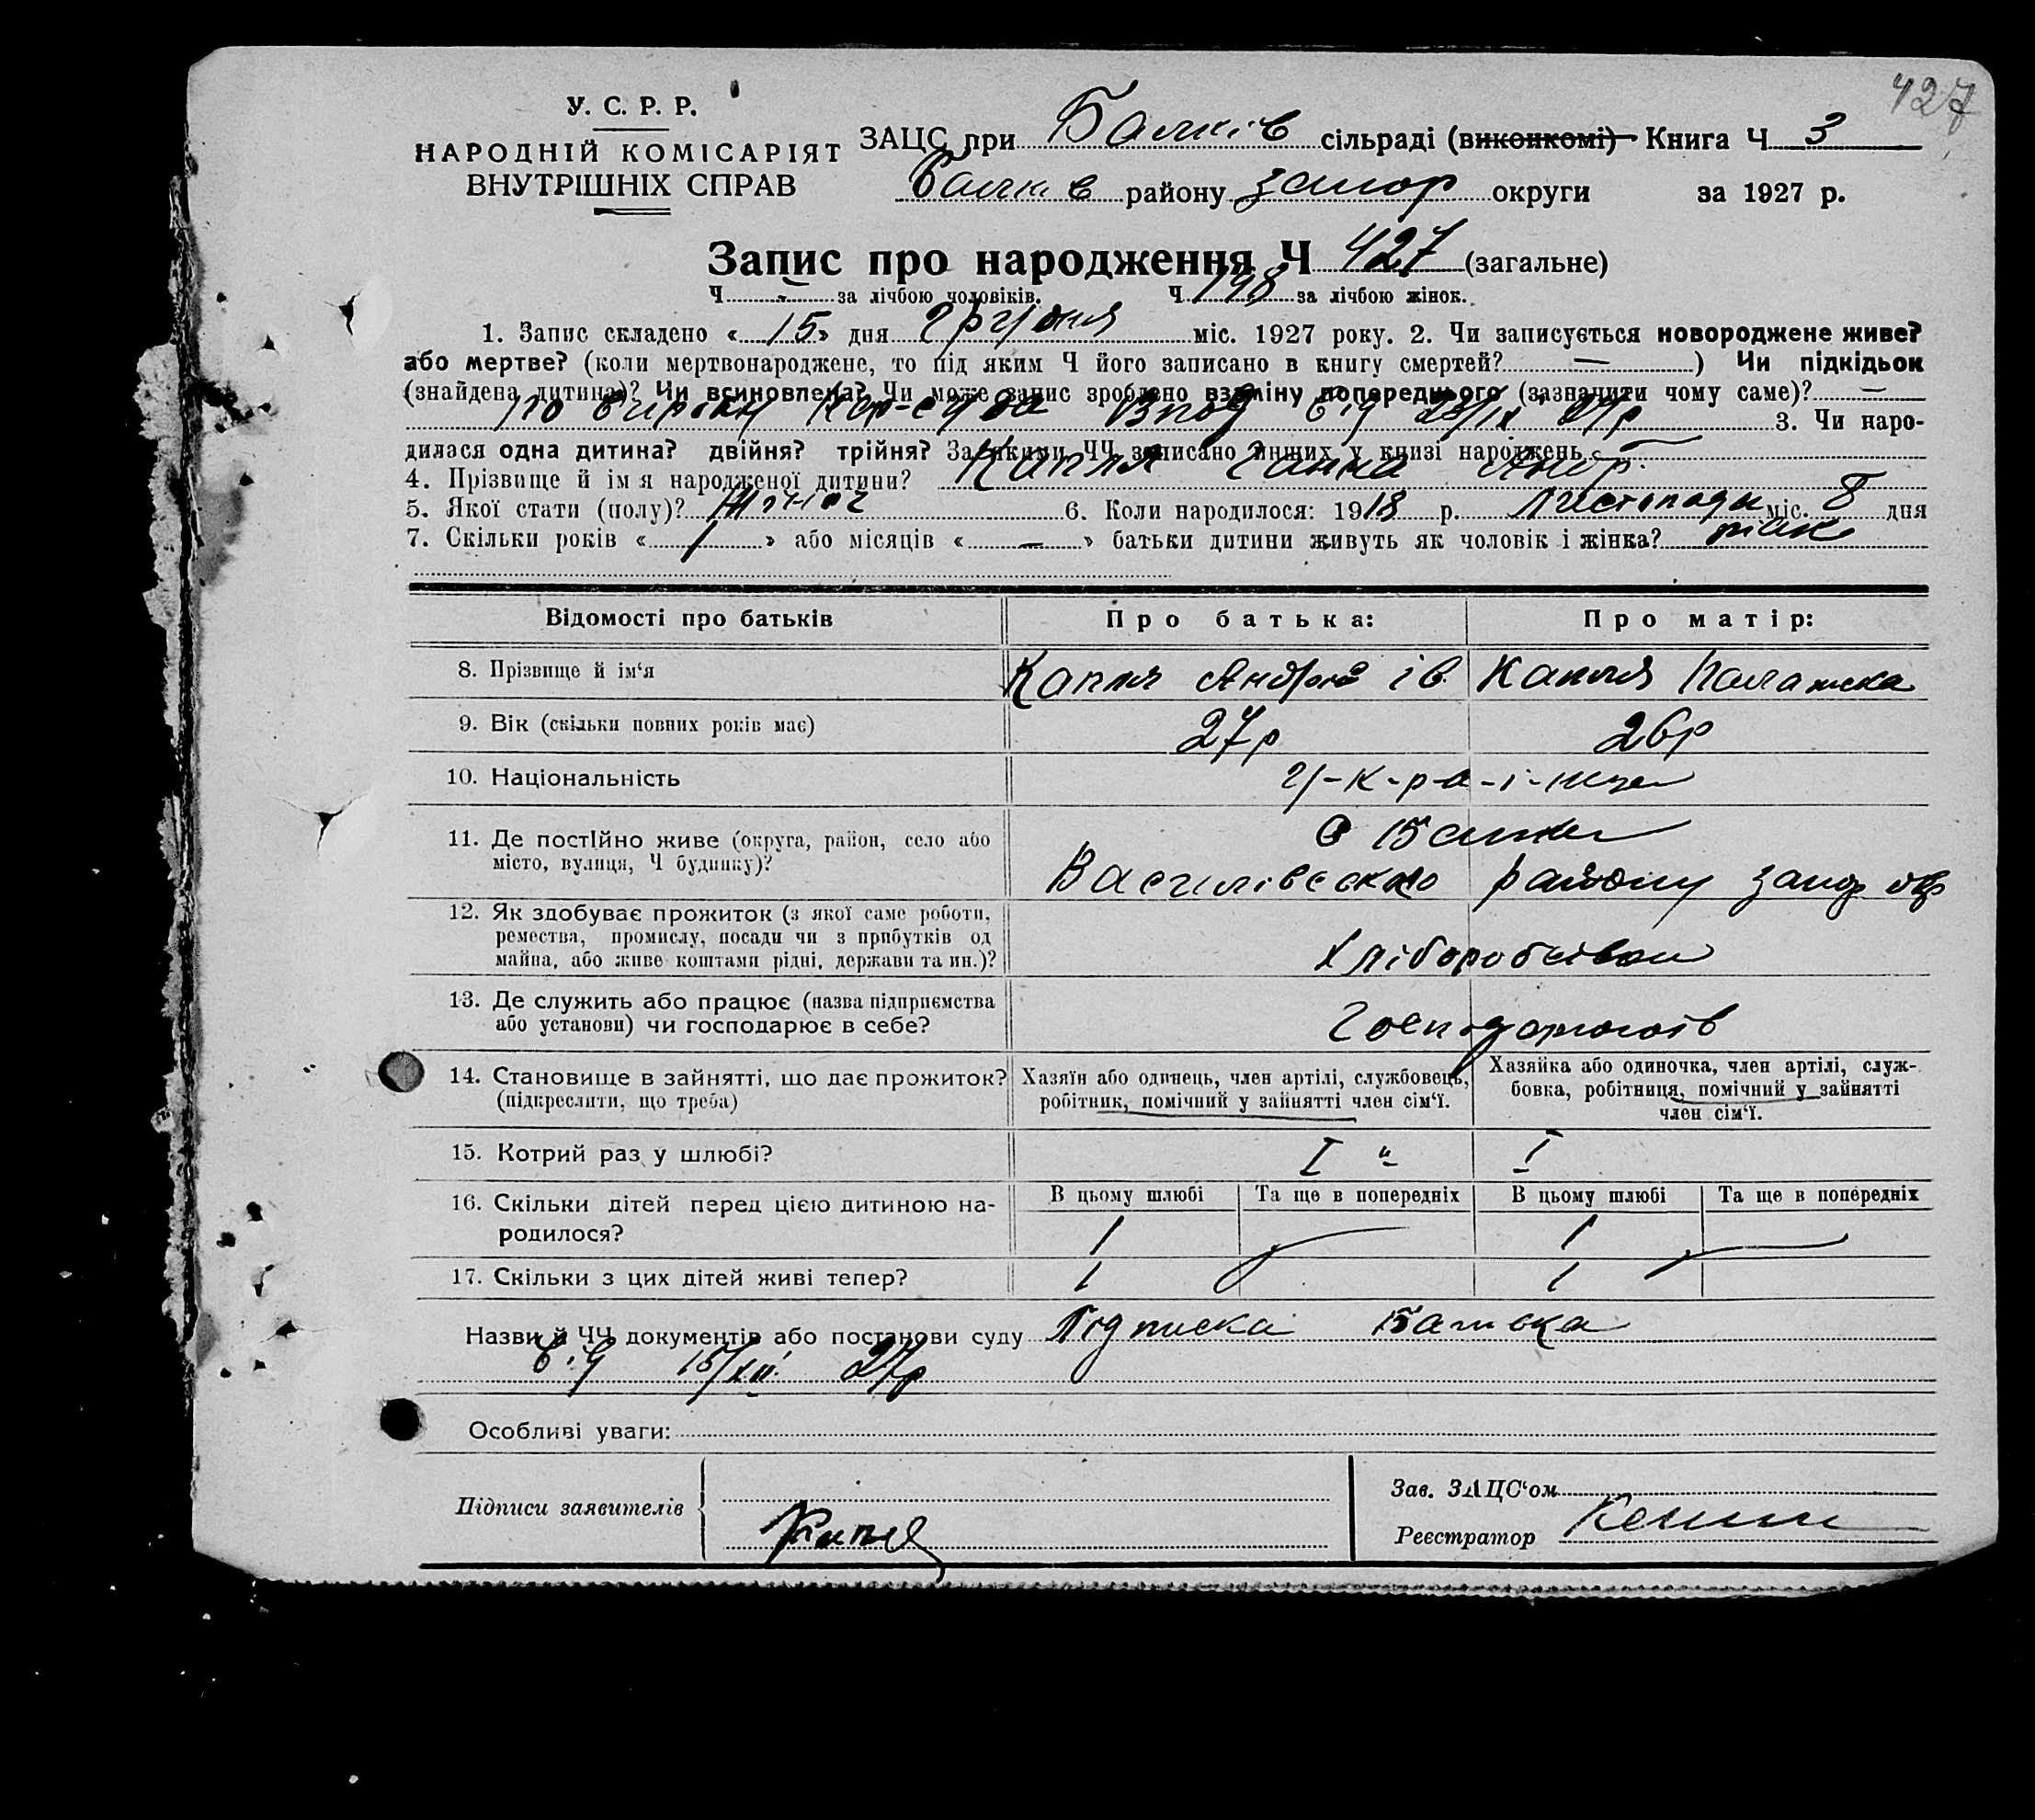 427
У. С. Р. Р.
НАРОДНІЙ КОМІСАРІЯТ
ВНУТРІШНІХ СПРАВ
ЗАЦС при Балків сільраді (виконкомі) Книга Ч 3
Балків району запор округи за 1927 р.
Запис про народження Ч 427 (загальне)
Ч - за лічбою чоловіків. Ч 198 за лічбою жінок.
1. Запис складено « 15 » дня грудня міс. 1927 року. 2. Чи записується новороджене живе?
або мертве? (коли мертвонароджене, то під яким Ч його записано в книгу смертей? — ) Чи підкідьок
(знайдена дитина)? Чи всиновлена? Чи може запис зроблено взаміну попереднього (зазначити чому саме)? —
по від 27р 3. Чи наро-
дилася одна дитина? двійня? трійня? За якими ЧЧ записано инших у книзі народжень —
4. Прізвище й ім'я народженої дитини? Капля Ганна Андр.
5. Якої стати (полу)? Жіноч 6. Коли народилося: 1918 р. Листопада міс. 8 дня
7. Скільки років « 1 » або місяців « — » батьки дитини живуть як чоловік і жінка? так
Відомості про батьків Про батька: Про матір:
8. Прізвище й ім‘я Капля Андрій ів. Капля Палажка
9. Вік (скільки повних років має) 27р 26р
10. Національність у-к-р-а-ї-нце
11. Де постІйно живе (округа, район, село або С Балки
місто, вулиця, Ч будинку)? Василівского району запор окр
12. Як здобуває прожиток (з якої саме роботи,
ремества, промислу, посади чи з прибутків од
майна, або живе коштами рідні, держави та ин.)? Хліборобством
13. Де служить або працює (назва підприємства
або установи) чи господарює в себе?
14. Становище в зайнятті, що дає прожиток? Хазяїн або одинець, член артілі, службовець, Хазяйка або одиночка, член артілі, служ-
(підкреслити, що треба) робітник, помічний у зайнятті член сім‘ї. бовка, робітниця, помічний у зайнятті
член сім‘ї.
15. Котрий раз у шлюбі? I " I
16. Скільки дітей перед цією дитиною на- В цьому шлюбі Та ще в попередніх В цьому шлюбі Та ще в попередніх
родилося? 1 1
17. Скільки з цих дітей живі тепер? 1 1
Назви й ЧЧ документів або постанови суду Підписка Батька
від 15/XII 27р
Особливі уваги:
Підписи заявителів Капля
Зав. ЗАЦС‘ом
Реєстратор